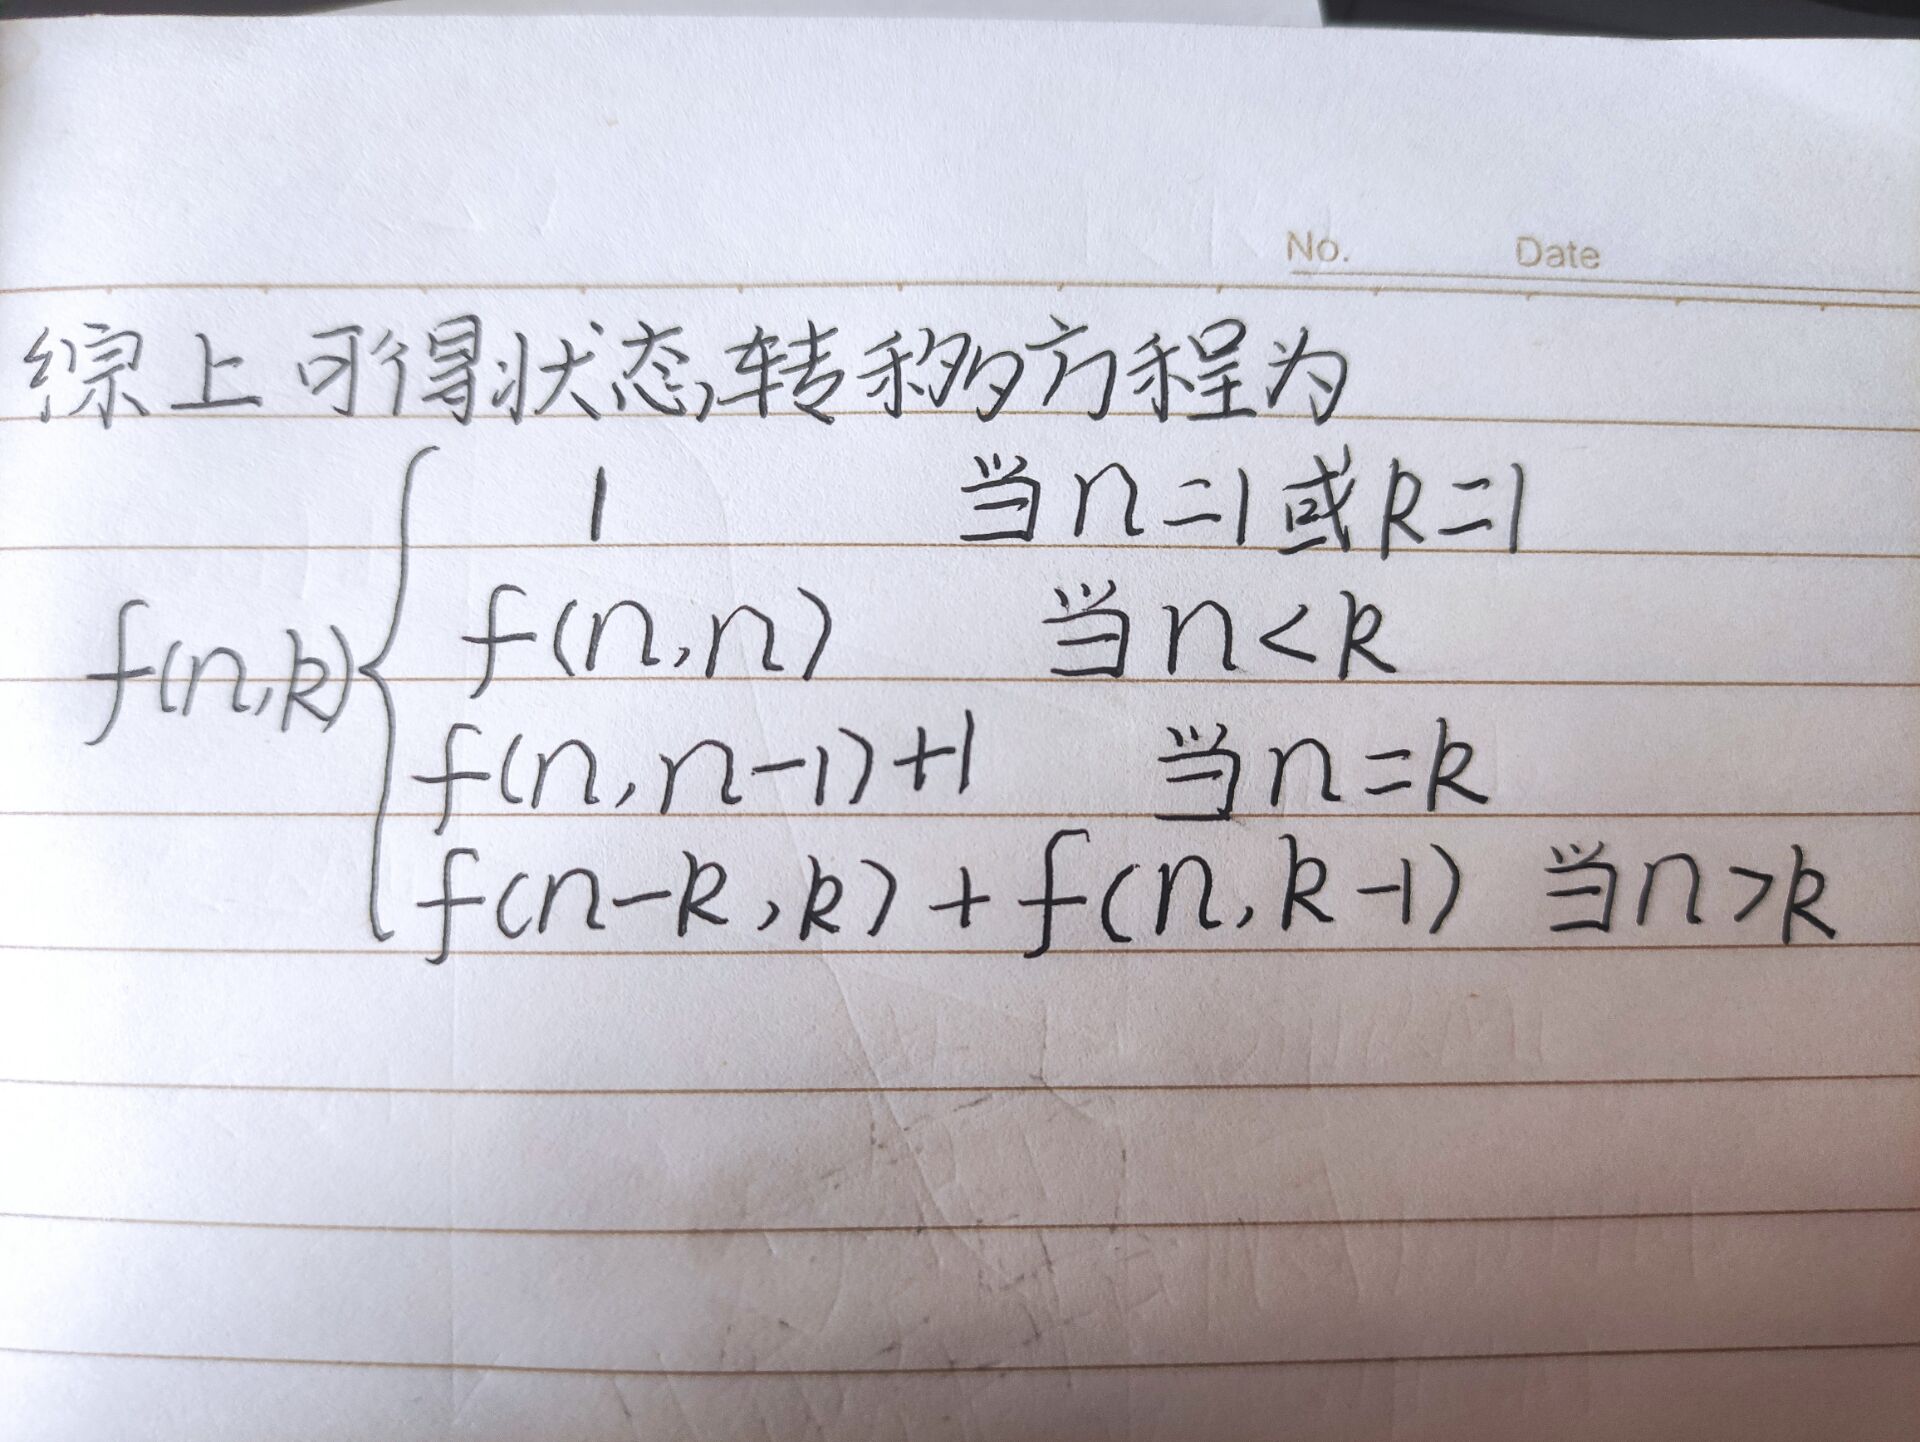 No. Date
综上可得状态转移方程为
1 当n=1或k=1
f(n,n) 当n<k
f(n,k){
f(n,n-1)+1 当n=k
f(n-k,k)+f(n,k-1) 当n>k